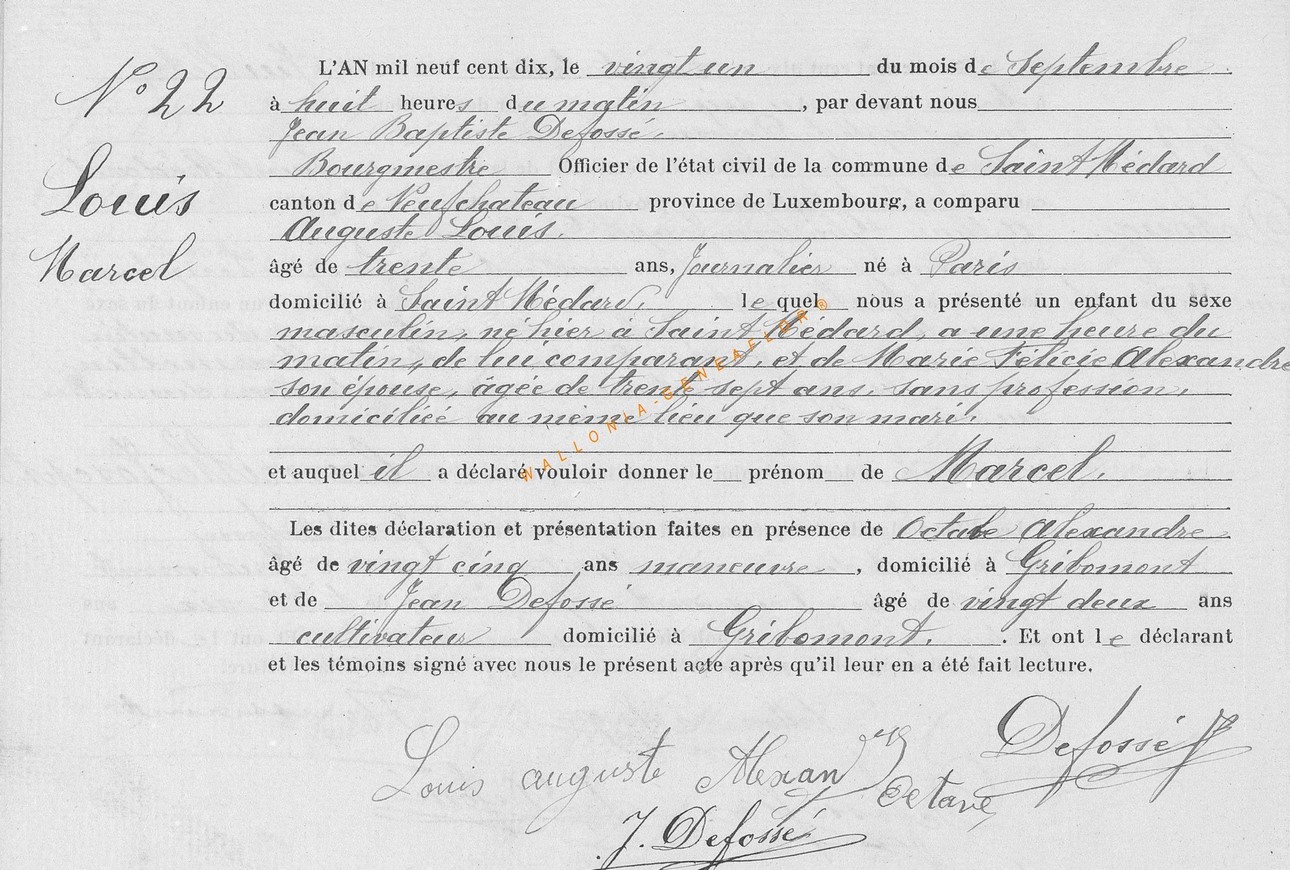 N° 22
Louis
Marcel
L'AN mil neuf cent dix, le vingt un du mois de Septembre
à huit heures du matin, par devant nous
Jean Baptiste Defossé.
Bourgmestre Officier de l'état civil de la commune de Saint Médard
canton de Neufchateau province de Luxembourg, a comparu
Auguste Louis.
âgé de trente ans, Journalier né à Paris
domicilié à Saint Médard. le quel nous a présenté un enfant du sexe
masculin, né hier à Saint Médard, a une heure du
matin, de lui comparant, et de Marie Félicie Alexandre
son épouse, âgée de trente sept ans, sans profession,
domiciliée au même lieu que son mari.
et auquel il a déclaré vouloir donner le prénom de Marcel.
Les dites déclaration et présentation faites en présence de Octave Alexandre
âgé de vingt cinq ans manœuvre, domicilié à Gribomont
et de Jean Defossé âgé de vingt deux ans
cultivateur domicilié à Gribomont. . Et ont le déclarant
et les témoins signé avec nous le présent acte après qu'il leur en a été fait lecture.
Louis auguste Alexandre Octave Defossé
J. Defossé
WALLONIA-GENEAFLOR®